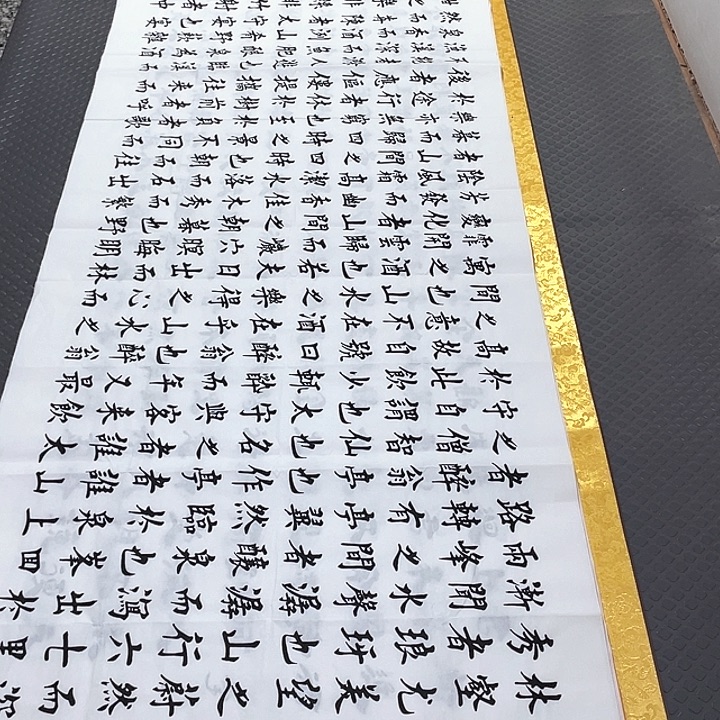 林壑尤美望之蔚然而深
秀者琅琊也山行六七里
漸聞水聲潺潺而瀉出於
兩峰之間者釀泉也峯回
路轉有亭翼然臨於泉上
者醉翁亭也作亭者誰山
之僧智仙也名之者誰太
守自謂也太守與客來飲
於此飲少輒醉而年又最
高故自號曰醉翁也醉翁
之意不在酒在乎山水之
間也山水之樂得之心而
寓之酒也若夫日出而林
霏開雲歸而巖穴暝晦明
變化者山間之朝暮也野
芳發而幽香佳木秀而繁
陰風霜高潔水落而石出
者山間之四時也朝而往
暮而歸四時之景不同而
樂亦無窮也至於負者歌
於途行者休於樹前者呼
後者應傴僂提攜往來而